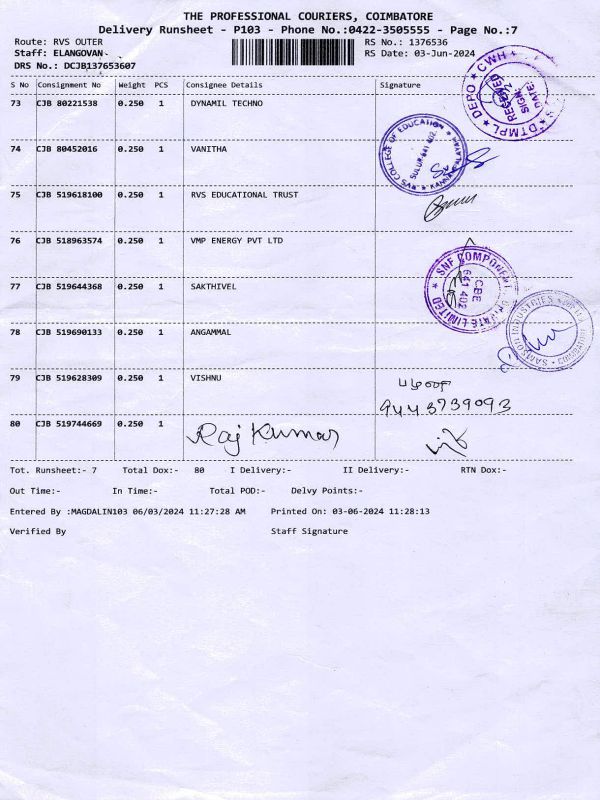 THE PROFESSIONAL COURIERS, COIMBATORE
Delivery Runsheet - P103 - Phone No.:0422-3505555 - Page No.:7
Route: RVS OUTER RS No.: 1376536
Staff: ELANGOVAN- RS Date: 03-Jun-2024
DRS No.: DCJB137653607
S No Consignment No Weight PCS Consignee Details Signature
73 CJB 80221538 0.250 1 DYNAMIL TECHNO
DTMPL DEPO CWH RECEIVED SIGN DATE:
74 CJB 80452016 0.250 1 VANITHA
RVS COLLEGE OF EDUCATION SULUR-641 402.
75 CJB 519618100 0.250 1 RVS EDUCATIONAL TRUST
76 CJB 518963574 0.250 1 VMP ENERGY PVT LTD
SNF COMPONENT PRIVATE LIMITED CBE 641 402
77 CJB 519644368 0.250 1 SAKTHIVEL
SAMSON INDUSTRIES
78 CJB 519690133 0.250 1 ANGAMMAL
79 CJB 519628309 0.250 1 VISHNU
9443739093
80 CJB 519744669 0.250 1 Raj Kumar
Tot. Runsheet:- 7 Total Dox:- 80 I Delivery:- II Delivery:- RTN Dox:-
Out Time:- In Time:- Total POD:- Delvy Points:-
Entered By :MAGDALIN103 06/03/2024 11:27:28 AM Printed On: 03-06-2024 11:28:13
Verified By Staff Signature